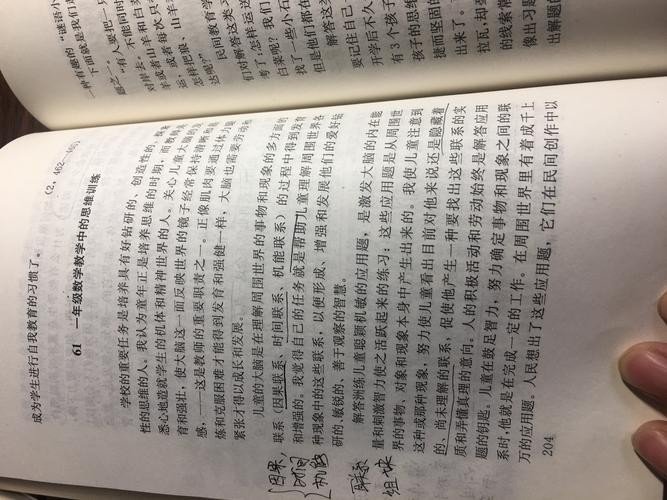 成为学生进行自我教育的习惯了。
(2，462—465)
61 一年级数学教学中的思维训练
学校的重要任务是培养具有好钻研的、创造性的、探索
性的思维的人。我认为童年正是培养思维的时期，而教师是
悉心地造就学生的机体和精神世界的人。关心儿童大脑的发
育和强壮，使大脑这一面反映世界的镜子经常保持清晰和敏
感，——这是教师的重要职责之一。正像肌肉要通过体力锻
炼和克服困难才能得到发育和强健一样，大脑也需要劳动和
紧张才得以成长和发展。
儿童的大脑是在理解周围世界的事物和现象的多方面的
联系（因果联系、时间联系、机能联系）的过程中得到发育
和增强的。我觉得自己的任务就是帮助儿童理解周围世界各
种现象中的这些联系，以便形成、增强和发展他们的爱好钻
研的、敏锐的、善于观察的智慧。
解答洲练儿童聪颖机敏的应用题，是激发大脑的内在能
量和刺激智力使之活跃起来的练习：这些应用题是从周围世
界的事物、对象和现象本身中产生出来的。我使儿童注意到
这种或那种现象，努力使儿童看出目前对他来说还是隐藏着
的、尚未理解的联系，促使他产生一种要找出这些联系的实
质和弄懂真理的意向。人的积极活动和劳动始终是解答应用
题的钥匙。儿童在鼓足智力，努力确定事物和现象之间的联
系时，他就是在完成一定的工作。在周围世界里有着成千上
万的应用题。人民想出了这些应用题，它们在民间创作中以
204
因果
时间
机能
联系
组块
“谜语小
一种有趣的
下面就是我们
题之一。“有人要把一只
不能同时
对掉去。山羊和白菜
羊或者每次只
运，或者把狼、山羊
怎样把
达呢？”
民间教育学
们对解答这类习
考了。怎样运送
找了一些小石
白菜呢？我们
但是他们都在
要记住自己
开学后不久
有3个孩子
孩子的思维
捷而坚固的
出来了。
拉瓦，却
的线索常
像出习题
出解题的